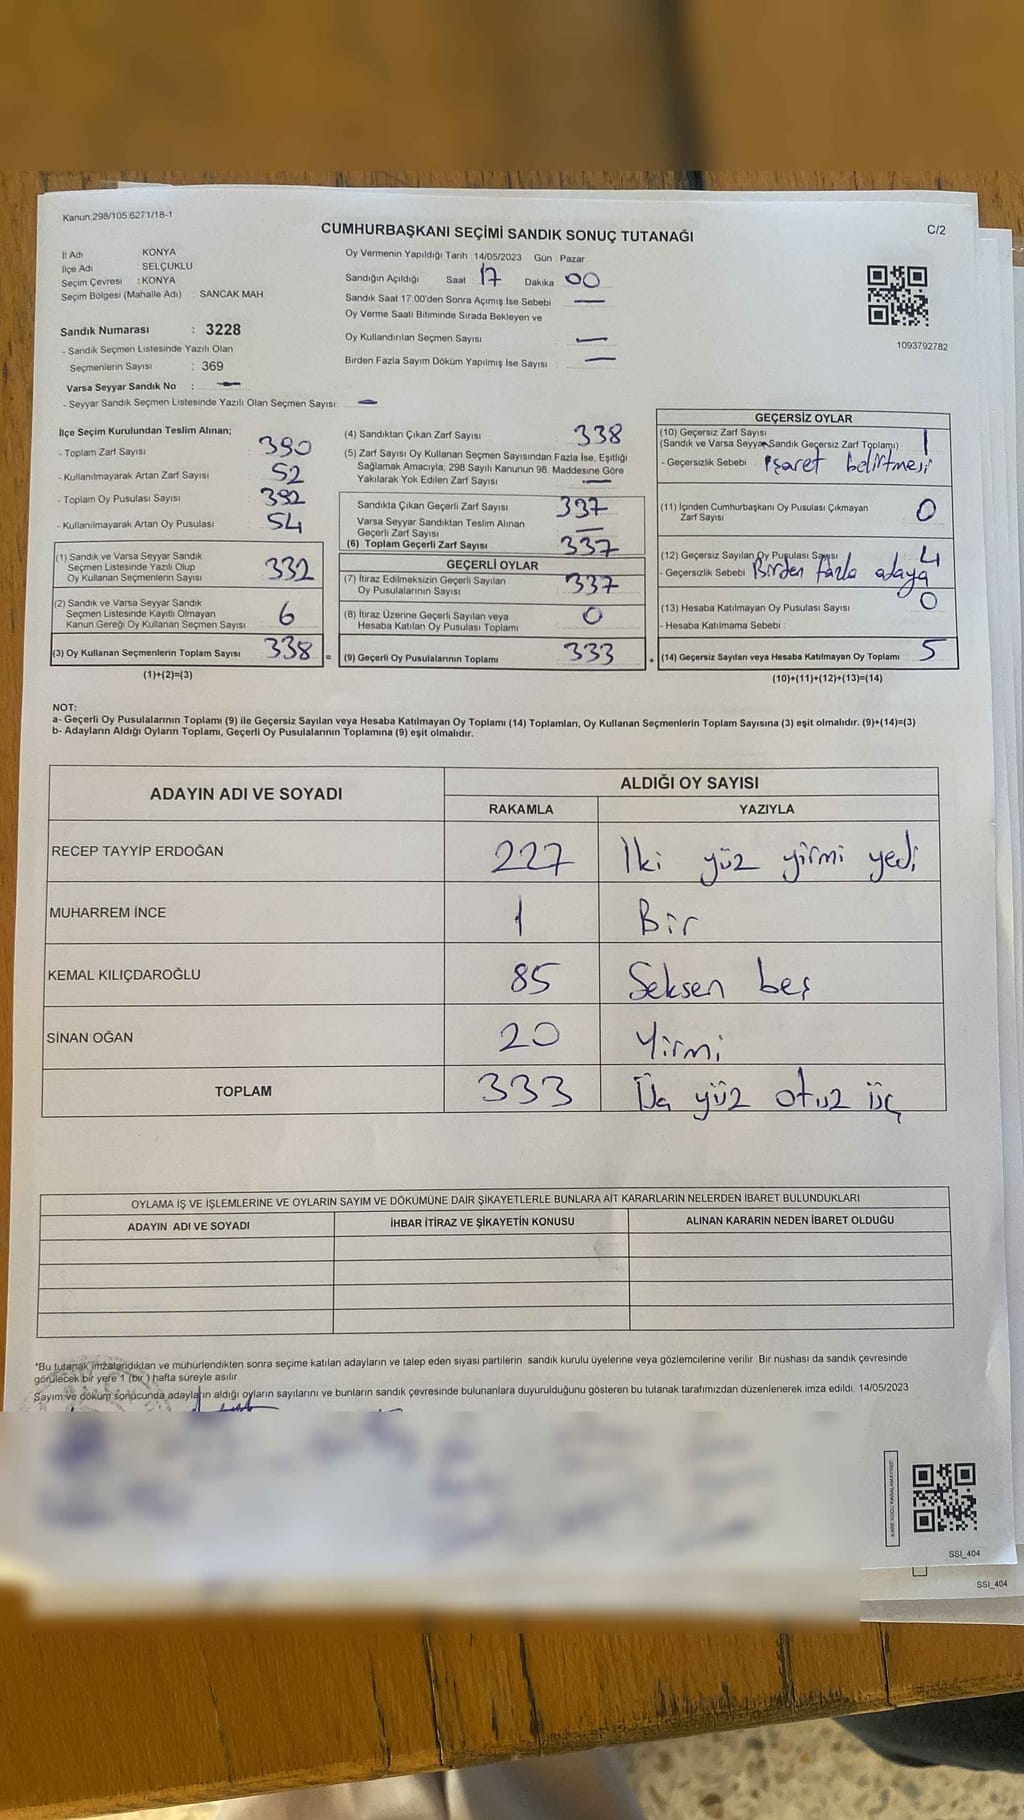 Kanun:298/105 6271/18-1
C/2
CUMHURBAŞKANI SEÇİMİ SANDIK SONUÇ TUTANAĞI
İl Adı : KONYA
İlçe Adı : SELÇUKLU
Seçim Çevresi : KONYA
Seçim Bölgesi (Mahalle Adı) : SANCAK MAH
Sandık Numarası : 3228
- Sandık Seçmen Listesinde Yazılı Olan
Seçmenlerin Sayısı : 369
Varsa Seyyar Sandık No : —
- Seyyar Sandık Seçmen Listesinde Yazılı Olan Seçmen Sayısı: —
Oy Vermenin Yapıldığı Tarih :14/05/2023 Gün : Pazar
Sandığın Açıldığı Saat 17 Dakika 00
Sandık Saat 17.00'den Sonra Açımış İse Sebebi —
Oy Verme Saati Bitiminde Sırada Bekleyen ve
Oy Kullandırılan Seçmen Sayısı —
Birden Fazla Sayım Döküm Yapılmış İse Sayısı : —
1093792782
İlçe Seçim Kurulundan Teslim Alınan;
- Toplam Zarf Sayısı 390
- Kullanılmayarak Artan Zarf Sayısı 52
- Toplam Oy Pusulası Sayısı 392
- Kullanılmayarak Artan Oy Pusulası 54
(1) Sandık ve Varsa Seyyar Sandık
Seçmen Listesinde Yazılı Olup
Oy Kullanan Seçmenlerin Sayısı 332
(2) Sandık ve Varsa Seyyar Sandık
Seçmen Listesinde Kayıtlı Olmayan
Kanun Gereği Oy Kullanan Seçmen Sayısı 6
(3) Oy Kullanan Seçmenlerin Toplam Sayısı 338 =
(1)+(2)=(3)
(4) Sandıktan Çıkan Zarf Sayısı 338
(5) Zarf Sayısı Oy Kullanan Seçmen Sayısından Fazla İse, Eşitliği
Sağlamak Amacıyla; 298 Sayılı Kanunun 98. Maddesine Göre
Yakılarak Yok Edilen Zarf Sayısı —
Sandıkta Çıkan Geçerli Zarf Sayısı 337
Varsa Seyyar Sandıktan Teslim Alınan
Geçerli Zarf Sayısı —
(6) Toplam Geçerli Zarf Sayısı 337
GEÇERLİ OYLAR
(7) İtiraz Edilmeksizin Geçerli Sayılan
Oy Pusulalarının Sayısı 337
(8) İtiraz Üzerine Geçerli Sayılan veya
Hesaba Katılan Oy Pusulası Toplamı 0
(9) Geçerli Oy Pusulalarının Toplamı 333 +
GEÇERSİZ OYLAR
(10) Geçersiz Zarf Sayısı
(Sandık ve Varsa Seyyar Sandık Geçersiz Zarf Toplamı) 1
- Geçersizlik Sebebi : işaret belirtmesi
(11) İçinden Cumhurbaşkanı Oy Pusulası Çıkmayan
Zarf Sayısı 0
(12) Geçersiz Sayılan Oy Pusulası Sayısı 4
- Geçersizlik Sebebi Birden fazla adaya
(13) Hesaba Katılmayan Oy Pusulası Sayısı 0
- Hesaba Katılmama Sebebi :
(14) Geçersiz Sayılan veya Hesaba Katılmayan Oy Toplamı 5
(10)+(11)+(12)+(13)=(14)
NOT:
a- Geçerli Oy Pusulalarının Toplamı (9) ile Geçersiz Sayılan veya Hesaba Katılmayan Oy Toplamı (14) Toplamları, Oy Kullanan Seçmenlerin Toplam Sayısına (3) eşit olmalıdır. (9)+(14)=(3)
b- Adayların Aldığı Oyların Toplamı, Geçerli Oy Pusulalarının Toplamına (9) eşit olmalıdır.
ADAYIN ADI VE SOYADI ALDIĞI OY SAYISI
RAKAMLA YAZIYLA
RECEP TAYYİP ERDOĞAN 227 İki yüz yirmi yedi
MUHARREM İNCE 1 Bir
KEMAL KILIÇDAROĞLU 85 Seksen beş
SİNAN OĞAN 20 Yirmi
TOPLAM 333 Üç yüz otuz üç
OYLAMA İŞ VE İŞLEMLERİNE VE OYLARIN SAYIM VE DÖKÜMÜNE DAİR ŞİKAYETLERLE BUNLARA AİT KARARLARIN NELERDEN İBARET BULUNDUKLARI
ADAYIN ADI VE SOYADI İHBAR İTİRAZ VE ŞİKAYETİN KONUSU ALINAN KARARIN NEDEN İBARET OLDUĞU
*Bu tutanak imzalandıktan ve mühürlendikten sonra seçime katılan adayların ve talep eden siyasi partilerin sandık kurulu üyelerine veya gözlemcilerine verilir. Bir nüshası da sandık çevresinde
görülecek bir yere 1 (bir ) hafta süreyle asılır
Sayım ve döküm sonucunda adayların aldığı oyların sayılarını ve bunların sandık çevresinde bulunanlara duyurulduğunu gösteren bu tutanak tarafımızdan düzenlenerek imza edildi. 14/05/2023
KARE KODU KARALAMAYINIZ!
SSI_404
SSI_404